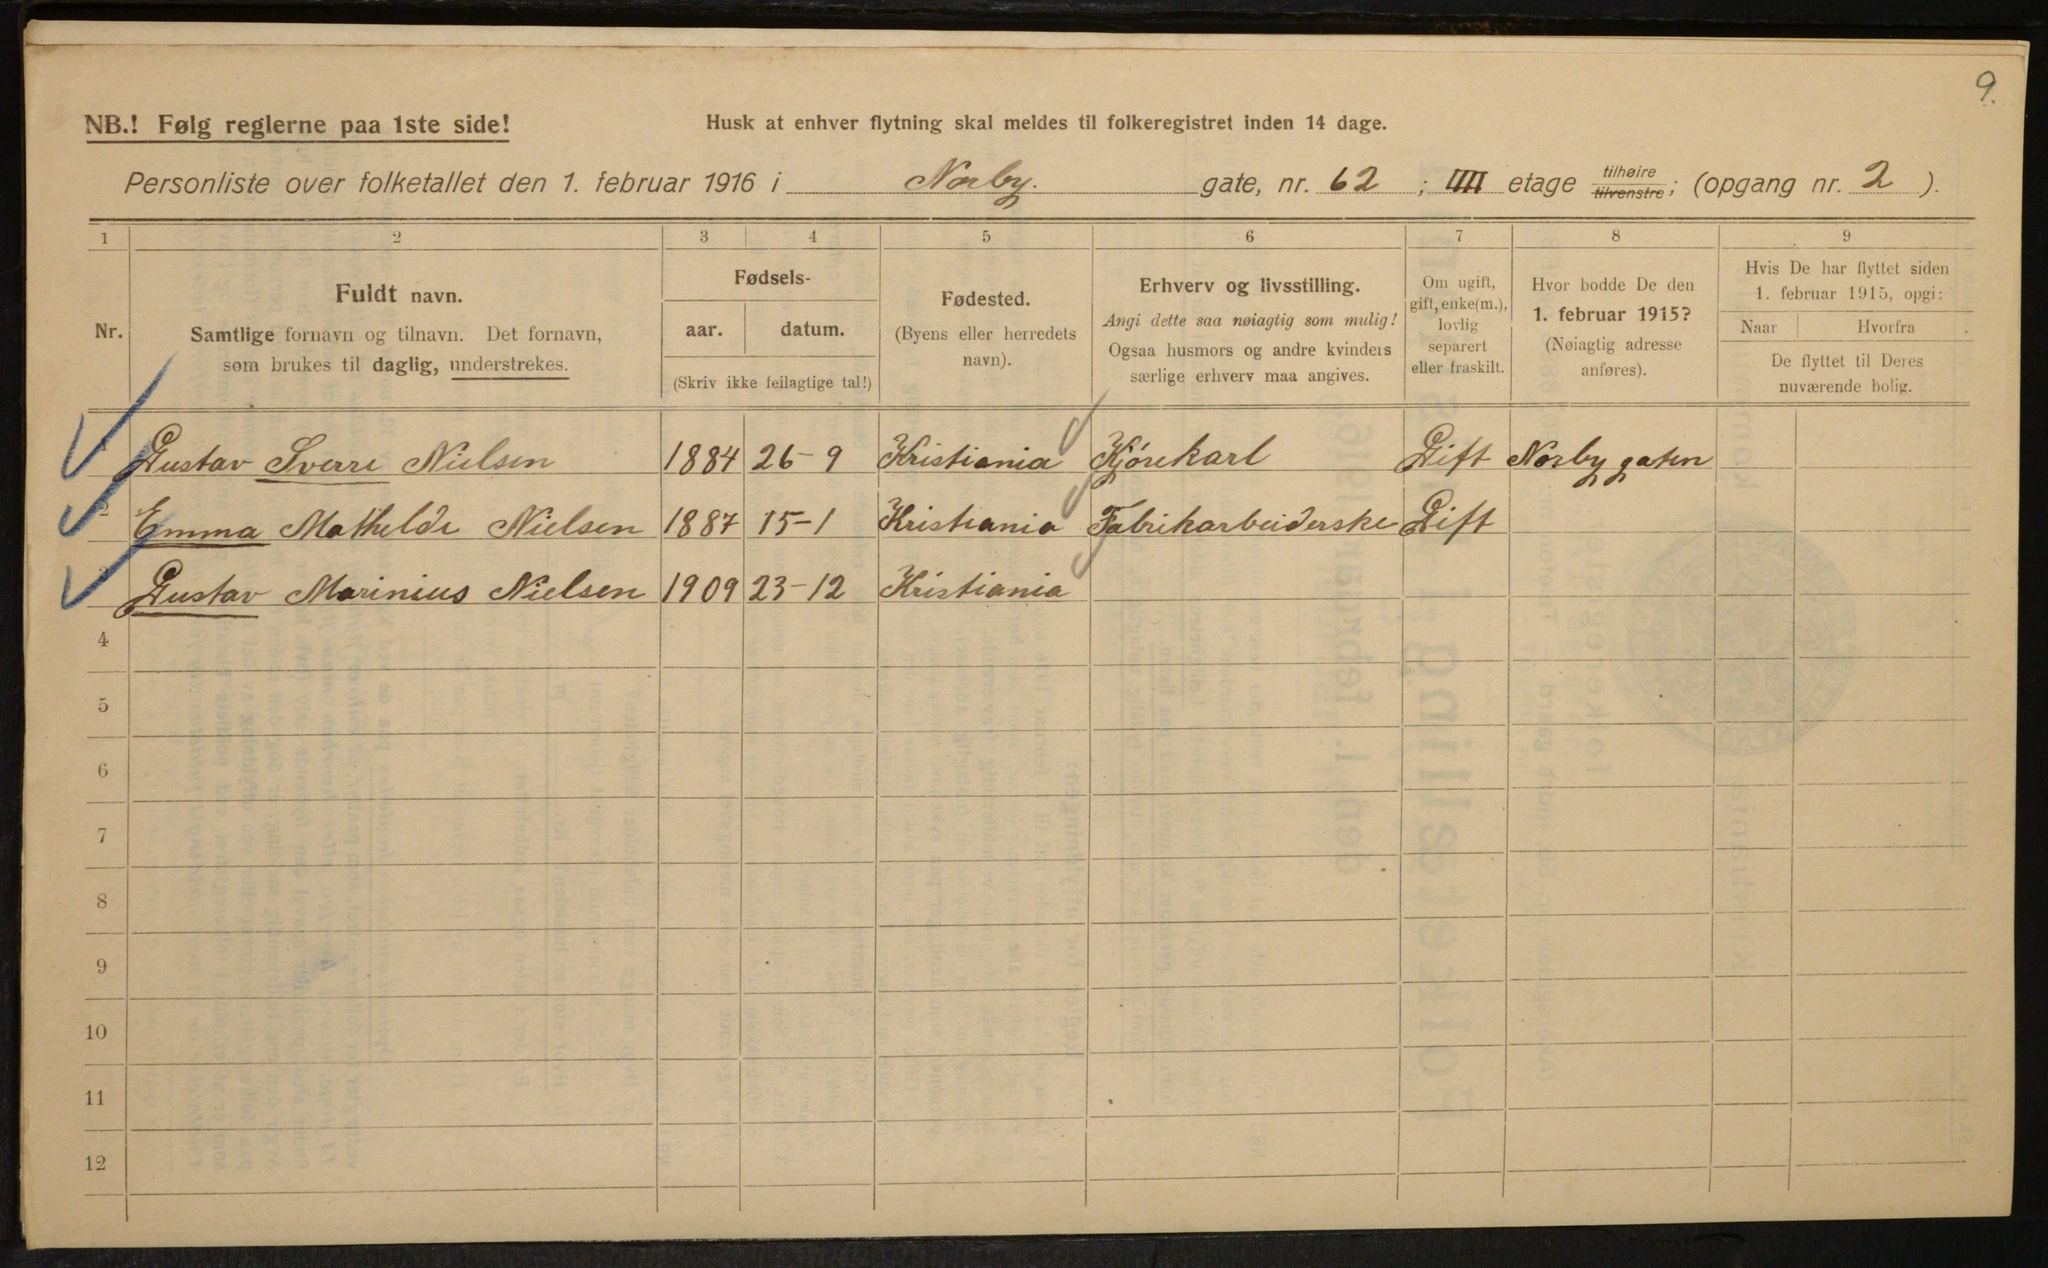 9.
NB.! Følg reglerne paa 1ste side!
Husk at enhver flytning skal meldes til folkeregistret inden 14 dage.
Personliste over folketallet den 1. februar 1916 i Norby. gate, nr. 62 ; IIII etage tilhøire tilvenstre; (opgang nr. 2 ).
1 2 3 4 5 6 7 8 9
Nr.
Fuldt navn.
Samtlige fornavn og tilnavn. Det fornavn,
som brukes til daglig, understrekes.
Fødsels-
aar. datum.
(Skriv ikke feilagtige tal!)
Fødested.
(Byens eller herredets
navn).
Erhverv og livsstilling.
Angi dette saa nøiagtig som mulig!
Ogsaa husmors og andre kvinders
særlige erhverv maa angives.
Om ugift,
gift, enke(m.),
lovlig
separert
eller fraskilt.
Hvor bodde De den
1. februar 1915?
(Nøiagtig adresse
anføres).
Hvis De har flyttet siden
1. februar 1915, opgi:
Naar Hvorfra
De flyttet til Deres
nuværende bolig.
Gustav Sverre Nielsen 1884 26-9 Kristiania Kjørekarl Gift Norby gaten
2 Emma Mathilde Nielsen 1887 15-1 Kristiania Fabrikarbeiderske Gift
3 Gustav Marinius Nielsen 1909 23-12 Kristiania
4
5
6
7
8
9
10
11
12